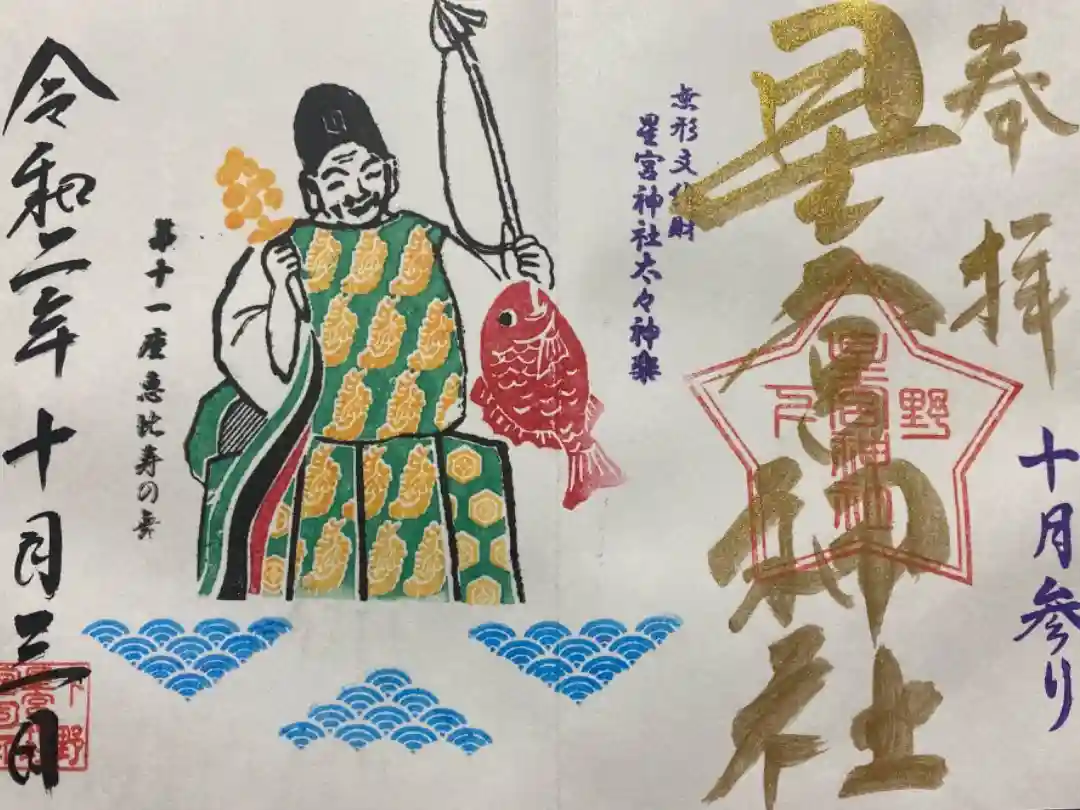 奉拝
十月参り
星宮神社
下野
星宮神社
無形文化財
星宮神社太々神楽
第十一座 恵比寿の舞
令和二年十月三日